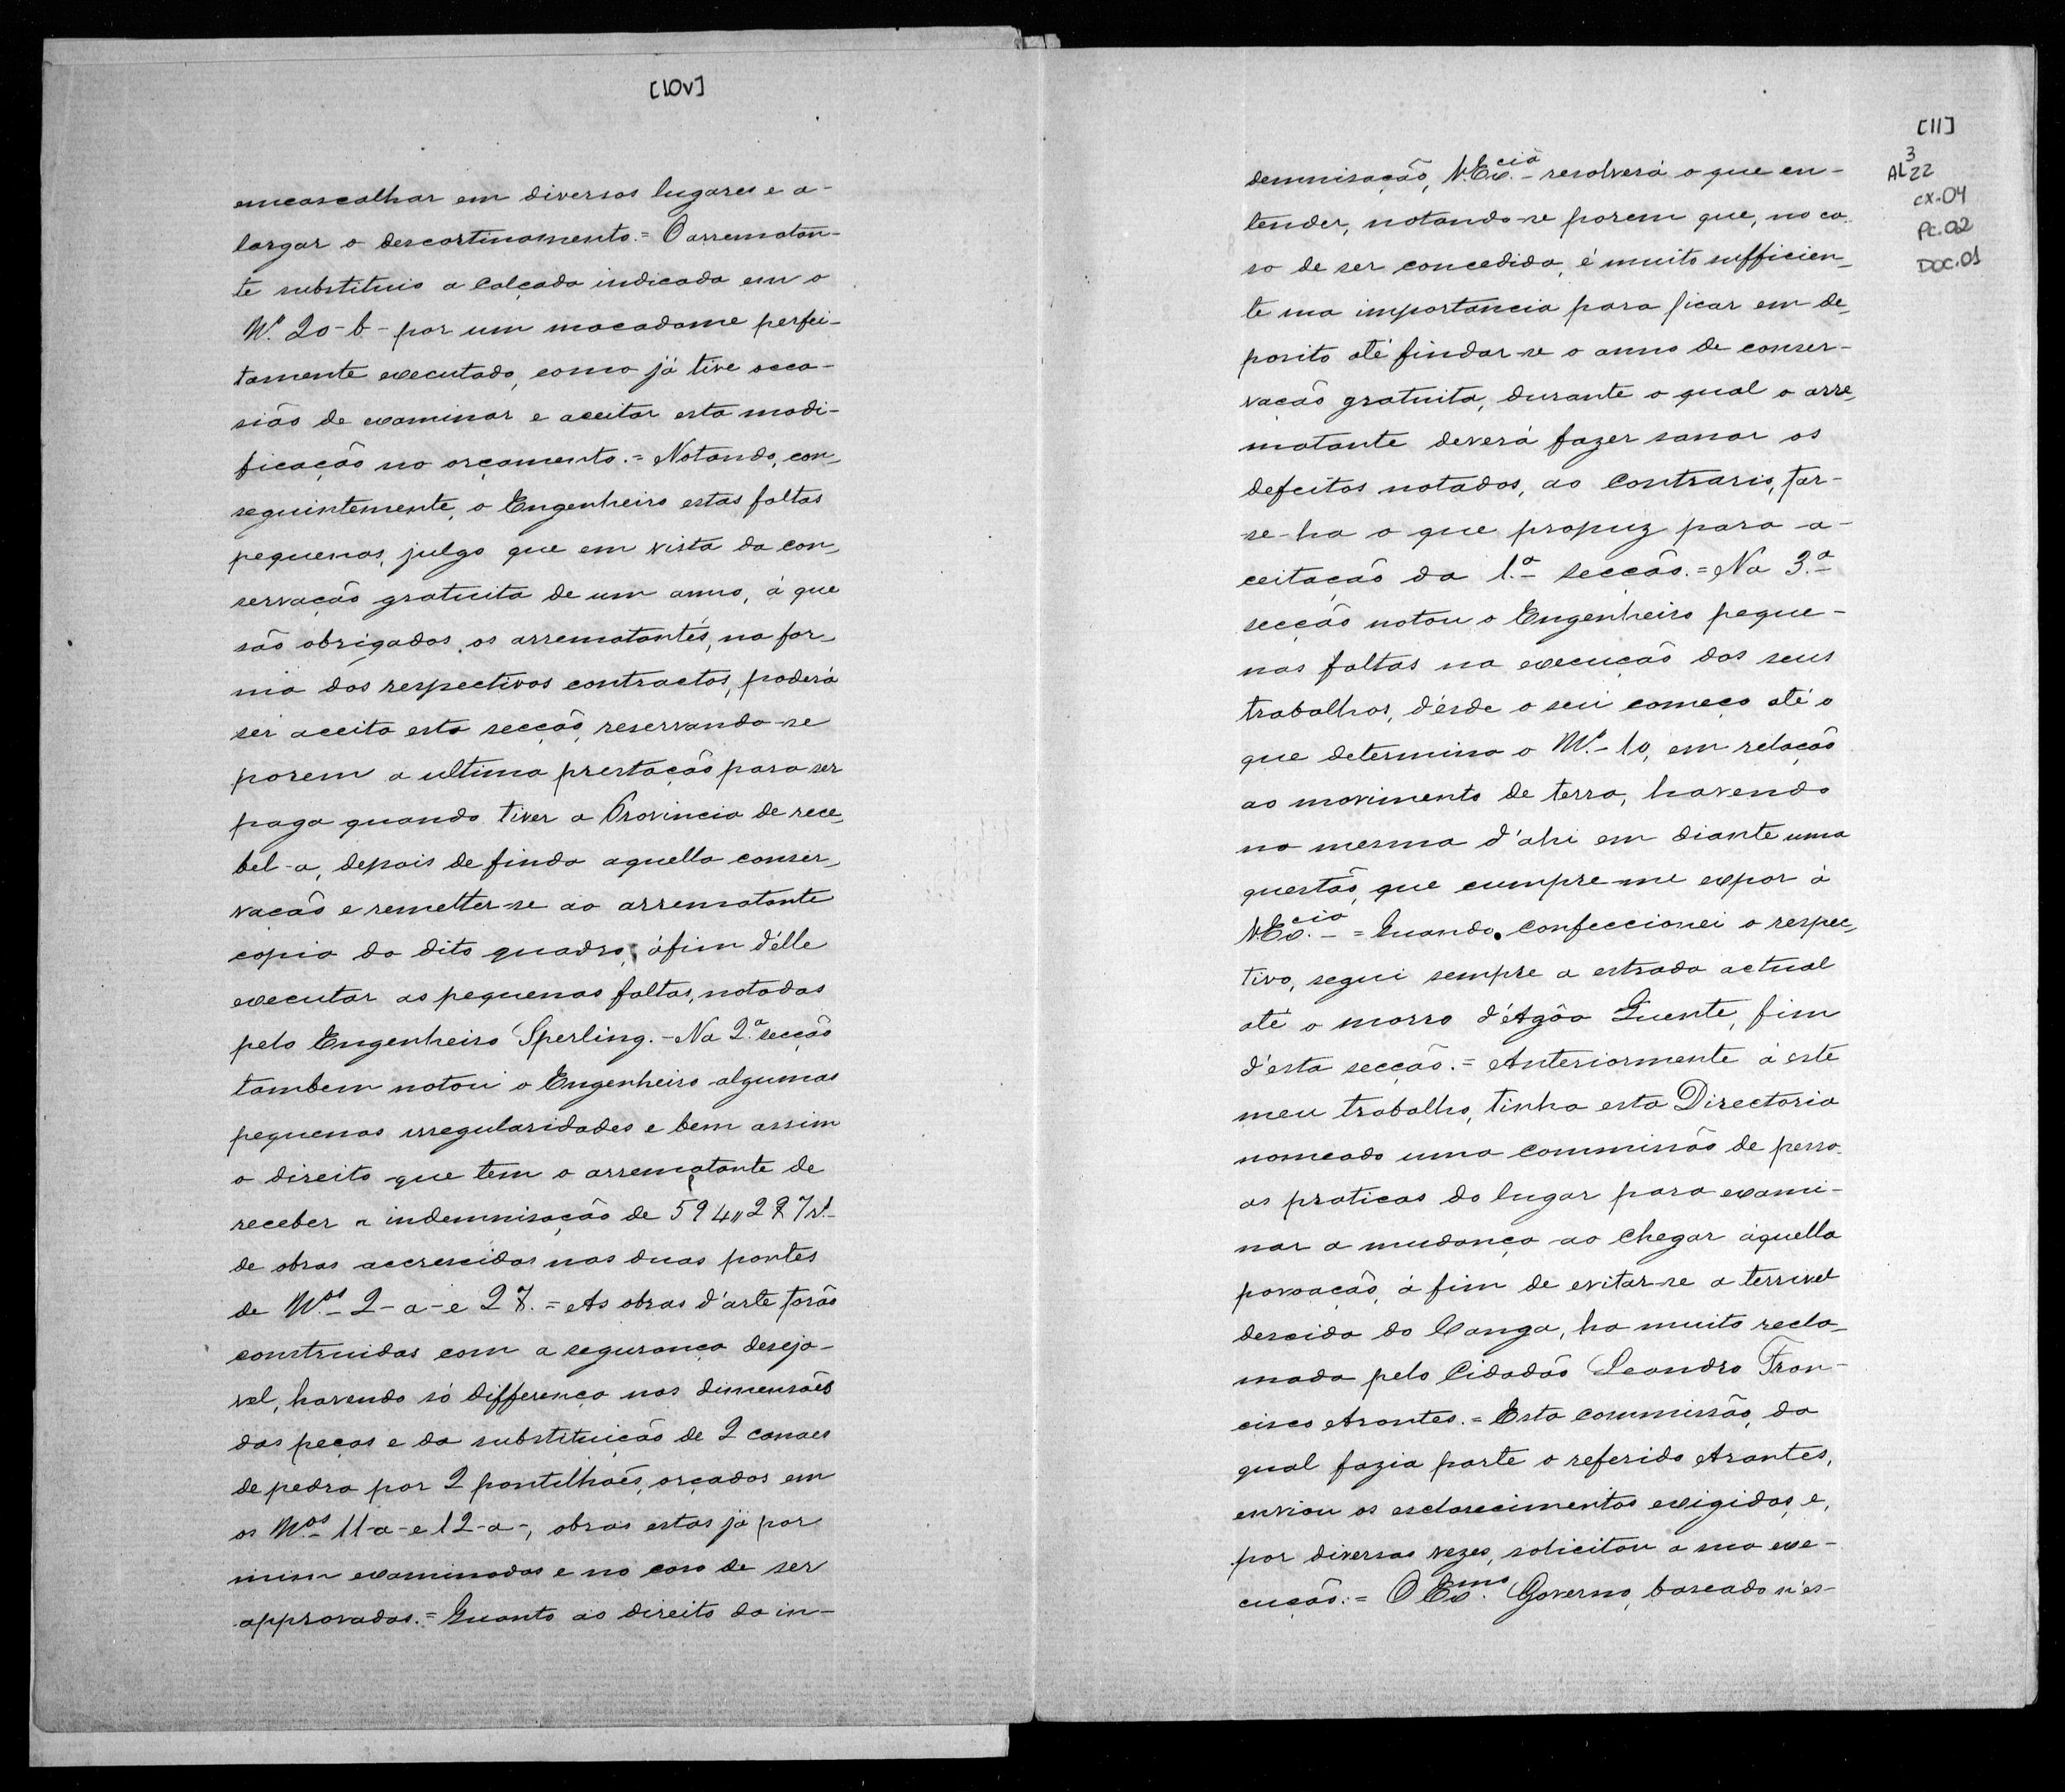 [10v]
encascalhar em diversos lugares e a-
largar o descortinamento.= O arrematan-
te substituio a calçada indicada em o
Nº. 20-b- por um macadame perfei-
tamente executado, como já tive occa-
sião de examinar e aceitar esta modi-
ficação no orçamento.= Notando, con-
seguintemente, o Engenheiro estas faltas
pequenas, julgo que em vista da con-
servação gratuita de um anno, á que
são obrigados os arrematantes, na for-
ma dos respectivos contractos, poderá
ser aceita esta secção, reservando-se
porem a ultima prestação para ser
paga quando tiver a Provincia de rece-
bel-a, depois de finda aquella conser-
vação e remetter-se ao arrematante
copia do dito quadro, áfim d'élle
executar as pequenas faltas, notadas
pelo Engenheiro Sperling.- Na 2.ª secção
tambem notou o Engenheiro algumas
pequenas irregularidades e bem assim
o direito que tem o arrematante de
receber a indemnisação de 594,,287rs.
de obras accrescidas nas duas pontes
de Nos. 2-a- e 27.= As obras d'arte forão
construidas com a segurança deseja-
vel, havendo só differença nas dimensões
das peças e da substituição de 2 canaes
de pedra por 2 pontilhões, orçados em
os Nos. 11-a- e 12-a-, obras estas já por
mim examinadas e no caso de ser
approvadas.= Quanto ao direito da in-
[11]
AL 3 22
cx-04
Pc.02
Doc.01
demnisação, V.Excia. resolverá o que en-
tender, notando-se porem que, no ca-
so de ser concedida, é muito sufficien-
te sua importancia para ficar em de-
posito até findar-se o anno de conser-
vação gratuita, durante o qual o arre-
matante deverá fazer sanar os
defeitos notados, ao contrario, far-
se-ha o que propuz para a-
ceitação da 1.ª secção.= Na 3.ª
secção notou o Engenheiro peque-
nas faltas na execução dos seus
trabalhos, désde o seu começo até o
que determina o Nº.- 10, em relação
ao movimento de terra, havendo
na mesma d'ahi em diante uma
questão, que cumpre-me expor á
V.Excia. = Quando confeccionei o respec-
tivo, segui sempre a estrada actual
até o morro d'Agôa Quente, fim
d'esta secção.= Anteriormente á este
meu trabalho, tinha esta Directoria
nomeado uma commissão de pesso-
as praticas do lugar para exami-
nar a mudança ao chegar áquella
povoação, á fim de evitar-se a terrivel
descida do Canga, ha muito recla-
mada pelo Cidadão Leandro Fran-
cisco Arantes.= Esta commissão, da
qual fazia parte o referido Arantes,
enviou os esclarecimentos exigidos, e,
por diversas vezes, solicitou a sua exe-
cução.= O Exmo. Governo, baseado n'es-